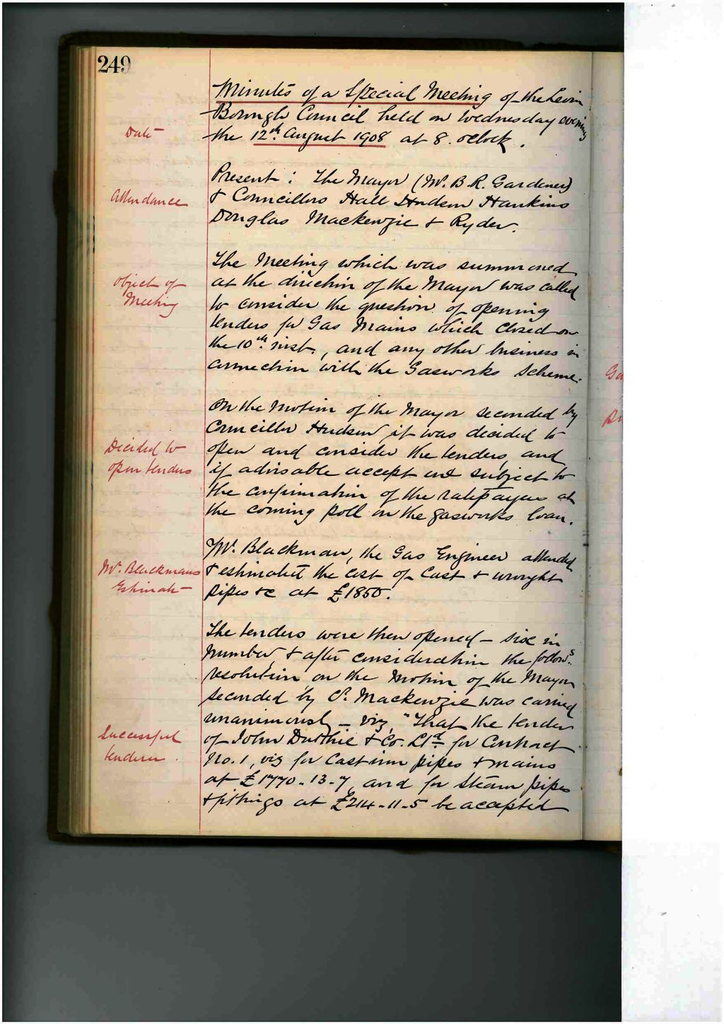 249
Minutes of a Special Meeting of the Levin
Borough Council held on Wednesday evening
Date
the 12th August 1908 at 8. oclock.
Present : The Mayor (Mr. B. R. Gardener)
Attendance
& Councillors Hall Hudson Hankins
Douglas Mackenzie & Ryder.
The Meeting which was summoned
Object of
Meeting
at the direction of the Mayor was called
to consider the question of opening
tenders for Gas Mains which closed on
the 10th inst, and any other business in
connection with the Gasworks Scheme.
On the motion of the Mayor seconded by
Councillor Hudson it was decided to
Decided to
open tenders
open and consider the tenders, and
if advisable accept one subject to
the confirmation of the ratepayers at
the coming poll on the gasworks loan.
Mr. Blackman, the Gas Engineer attended
Mr. Blackmans
Estimate
& estimated the cost of Cast & wrought
pipes &c at £1850.
The tenders were then opened - six in
number, & after consideration the follows
resolution on the motion of the Mayor
seconded by Cr. Mackenzie was carried
unanimously - viz, "That the tender
Successful
tenderer
of John Duthie & Co. Ltd for Contract
No. 1, viz for Cast iron pipes & mains
at £1770-13-7, and for Steam pipes
& fittings at £214-11-5 be accepted